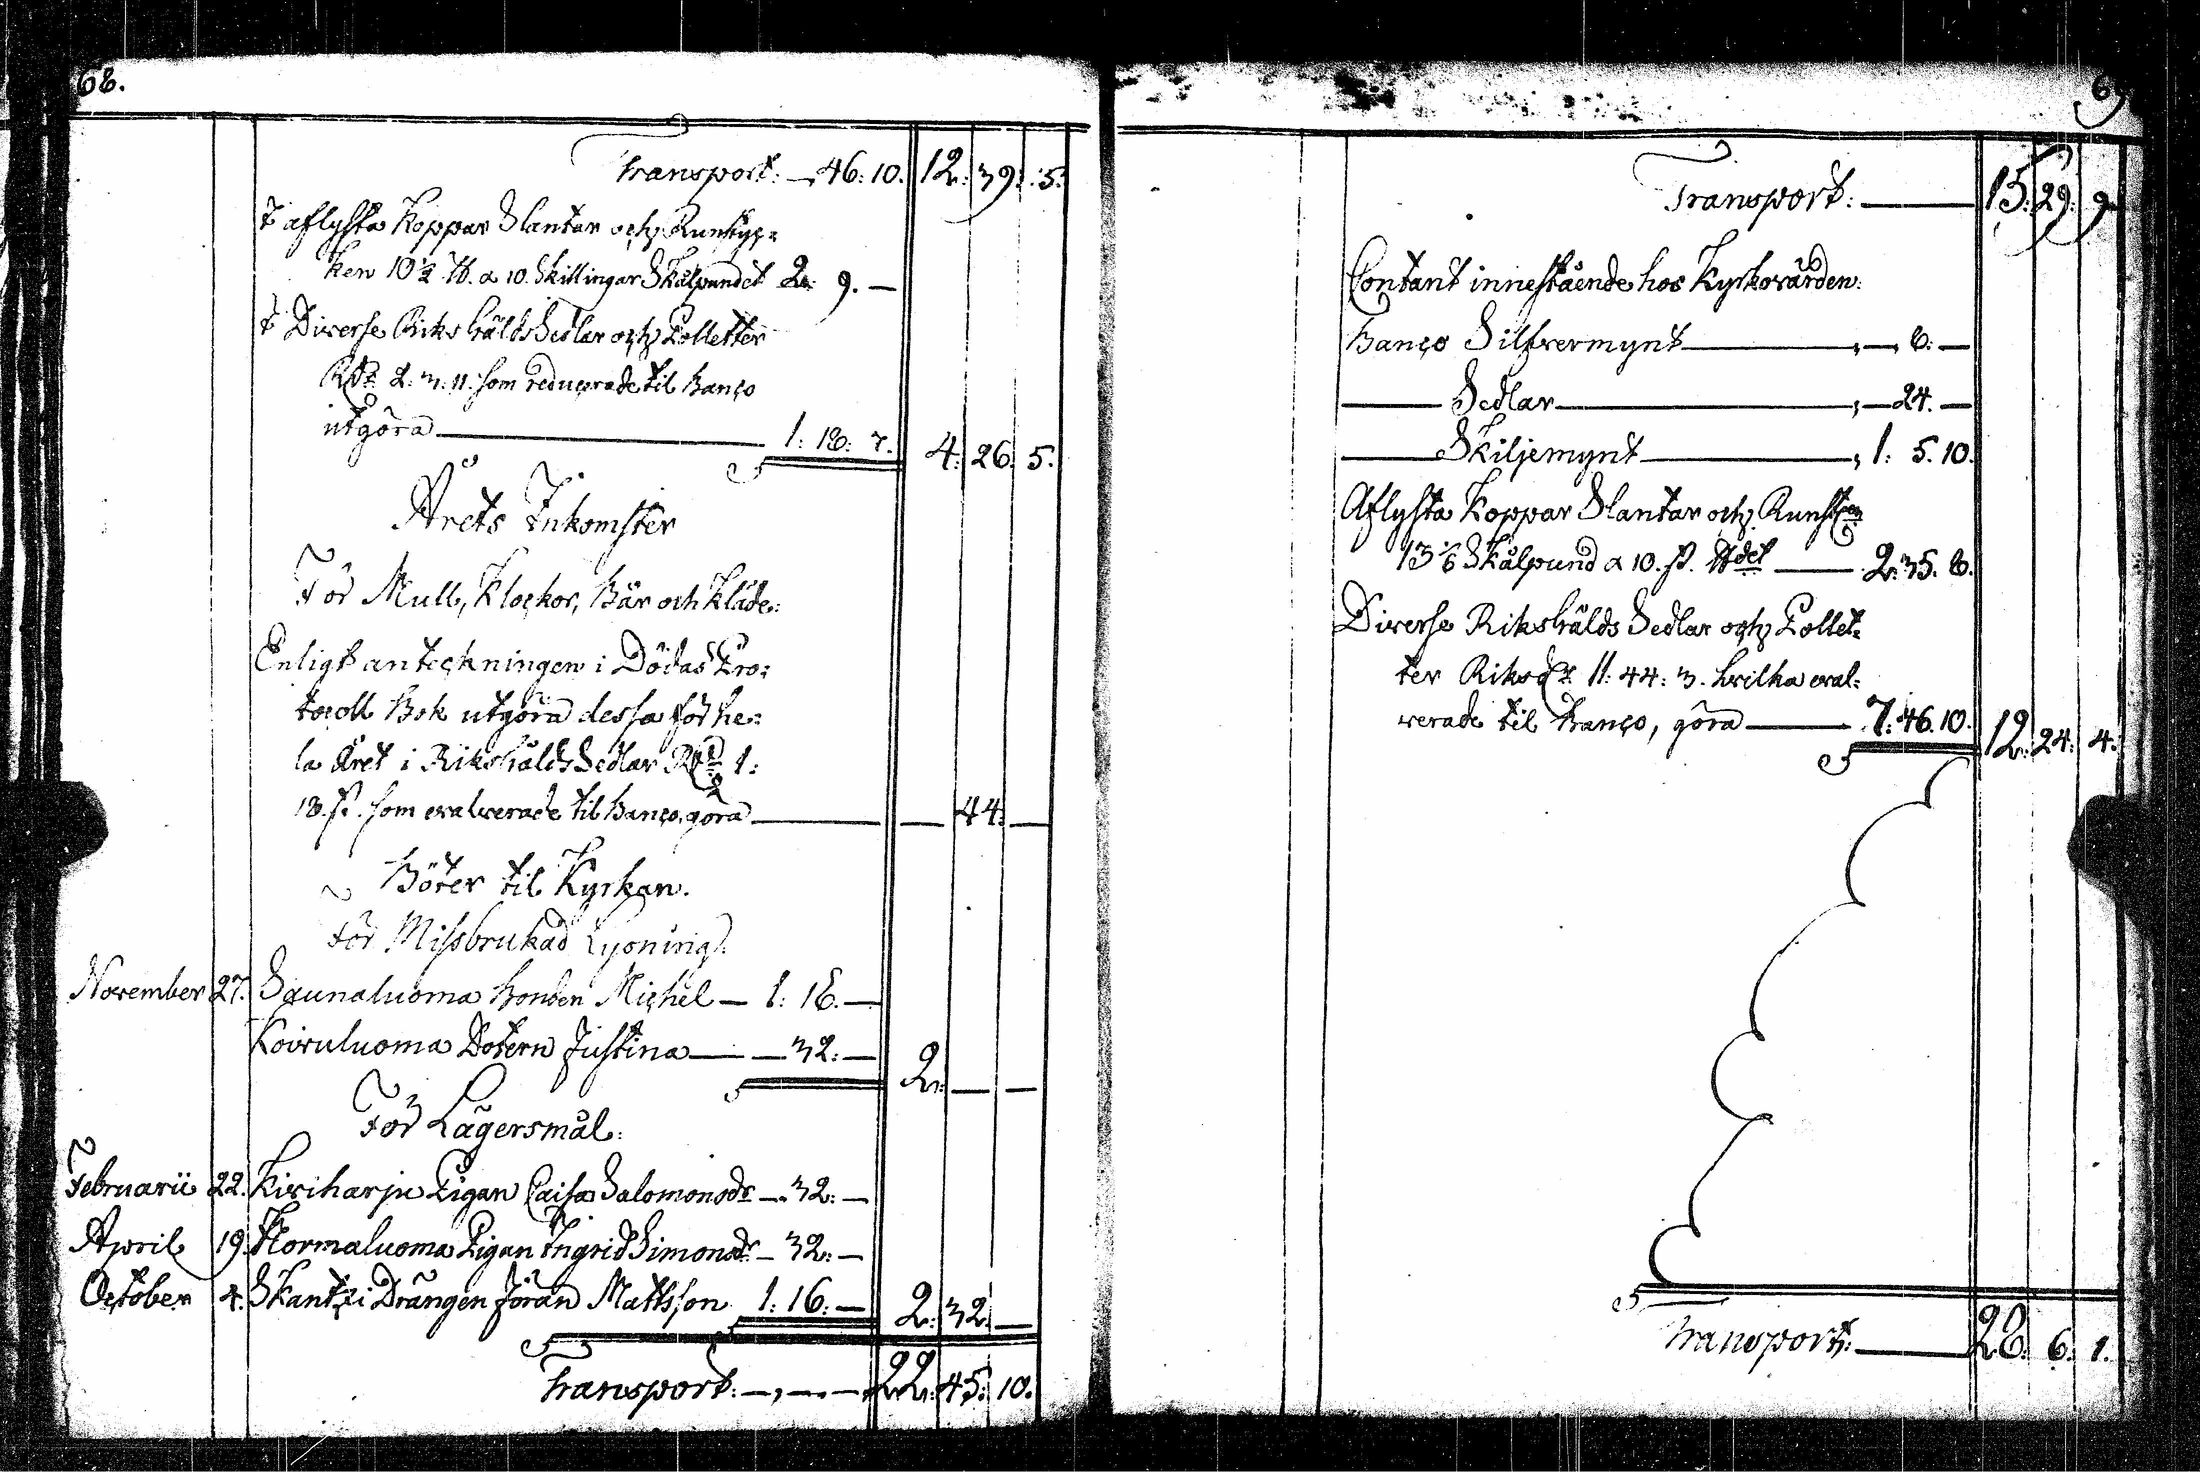 68.
Transport: — 46: 10. 12: 39: 5.
t aflysta Koppar Slantar och Runstyc=
ken 10 ½ ℔. a 10. Skillingar Skålpundet 2: 9. —
t Diverse Riksgälds Sedlar och Polletter
Rdr 2: 3: 11. som reducerade til Banco
utgöra — 1: 18: 7. 4: 26: 5.
Årets Inkomster
För Mull, Klockor, Bår och Kläde:
Enligt anteckningen i Dödas Pro=
tocoll Bok utgöra dessa för he=
la Året i Riksgälds Sedlar Rdr 1:
18. s. som evalverade til Banco, göra — — 44: —
Böter til Kyrkan.
För Missbrukad
November 27. Saunaluoma Bonden Michel — 1: 16. —
Koivuluoma Dotern Justina — — 32: — 2: — —
För Lägersmål:
Februarii 22. Kiviharju Pigan Caisa Salomonsdr — 32: —
April 19. Hormaluoma Pigan Ingrid Simonsdr — 32: —
October 4. Skantzi Drängen Jöran Mattsson 1: 16: — 2: 32: —
Transport: — , — . — 22: 45: 10.
69
Transport: — 15: 29: 9
Contant innestående hos Kyrkovärden:
Banco Silfvermynt — , — 8: —
— Sedlar — , — 24. —
— Skiljemynt — , 1: 5. 10.
Aflysta Koppar Slantar och
13 1/6 Skålpund a 10. s. ℔det — 2: 35. 8.
Diverse Riksgälds Sedlar och Pollet=
ter Riksdr 11: 44: 3. hvilka eval=
verade til Banco, göra — 7: 46. 10. 12: 24: 4.
Transport: — 28: 6: 1.